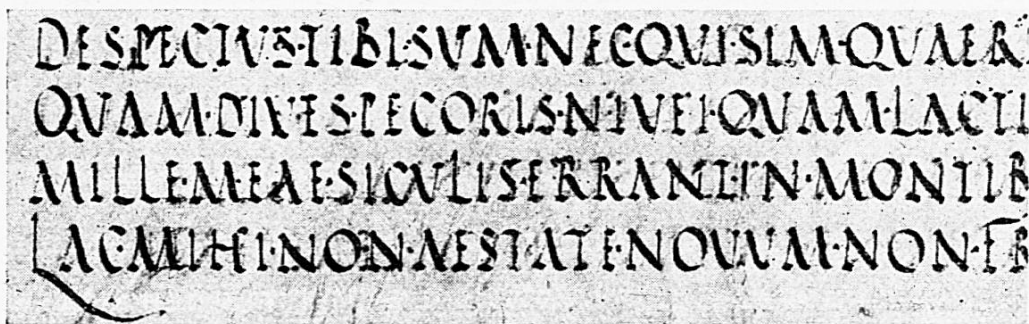 DESPECTVS·TIBI·SVM·NEC·QVI·SIM·QVAERI
QVAM·DIVES·PECORIS·NIVEI·QVAM·LACTI
MILLE·MEAE·SICVLIS·ERRANT·IN·MONTIB
LAC·MIHI·NON·AESTATE·NOVVM·NON·FR